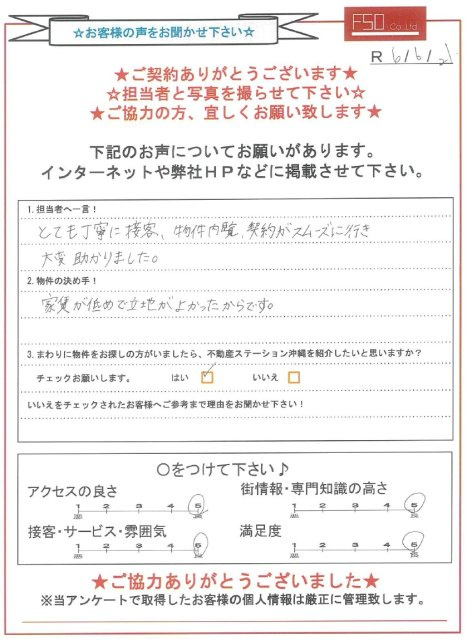 ☆お客様の声をお聞かせ下さい☆
FSO
Co.Ltd
R 6/6/21
★ご契約ありがとうございます★
☆担当者と写真を撮らせて下さい☆
★ご協力の方、宜しくお願い致します★
下記のお声についてお願いがあります。
インターネットや弊社HPなどに掲載させて下さい。
1.担当者へ一言！
とても丁寧に接客、物件内覧、契約がスムーズに行き
大変助かりました。
2.物件の決め手！
家賃が低めで立地がよかったからです。
3.まわりに物件をお探しの方がいましたら、不動産ステーション沖縄を紹介したいと思いますか？
チェックお願いします。 はい ☑ いいえ □
いいえをチェックされたお客様へご参考まで理由をお聞かせ下さい！
〇をつけて下さい♪
アクセスの良さ 街情報・専門知識の高さ
1 2 3 4 5 1 2 3 4 5
悪 良 悪 良
接客・サービス・雰囲気 満足度
1 2 3 4 5 1 2 3 4 5
悪 良 悪 良
★ご協力ありがとうございました★
※当アンケートで取得したお客様の個人情報は厳正に管理致します。